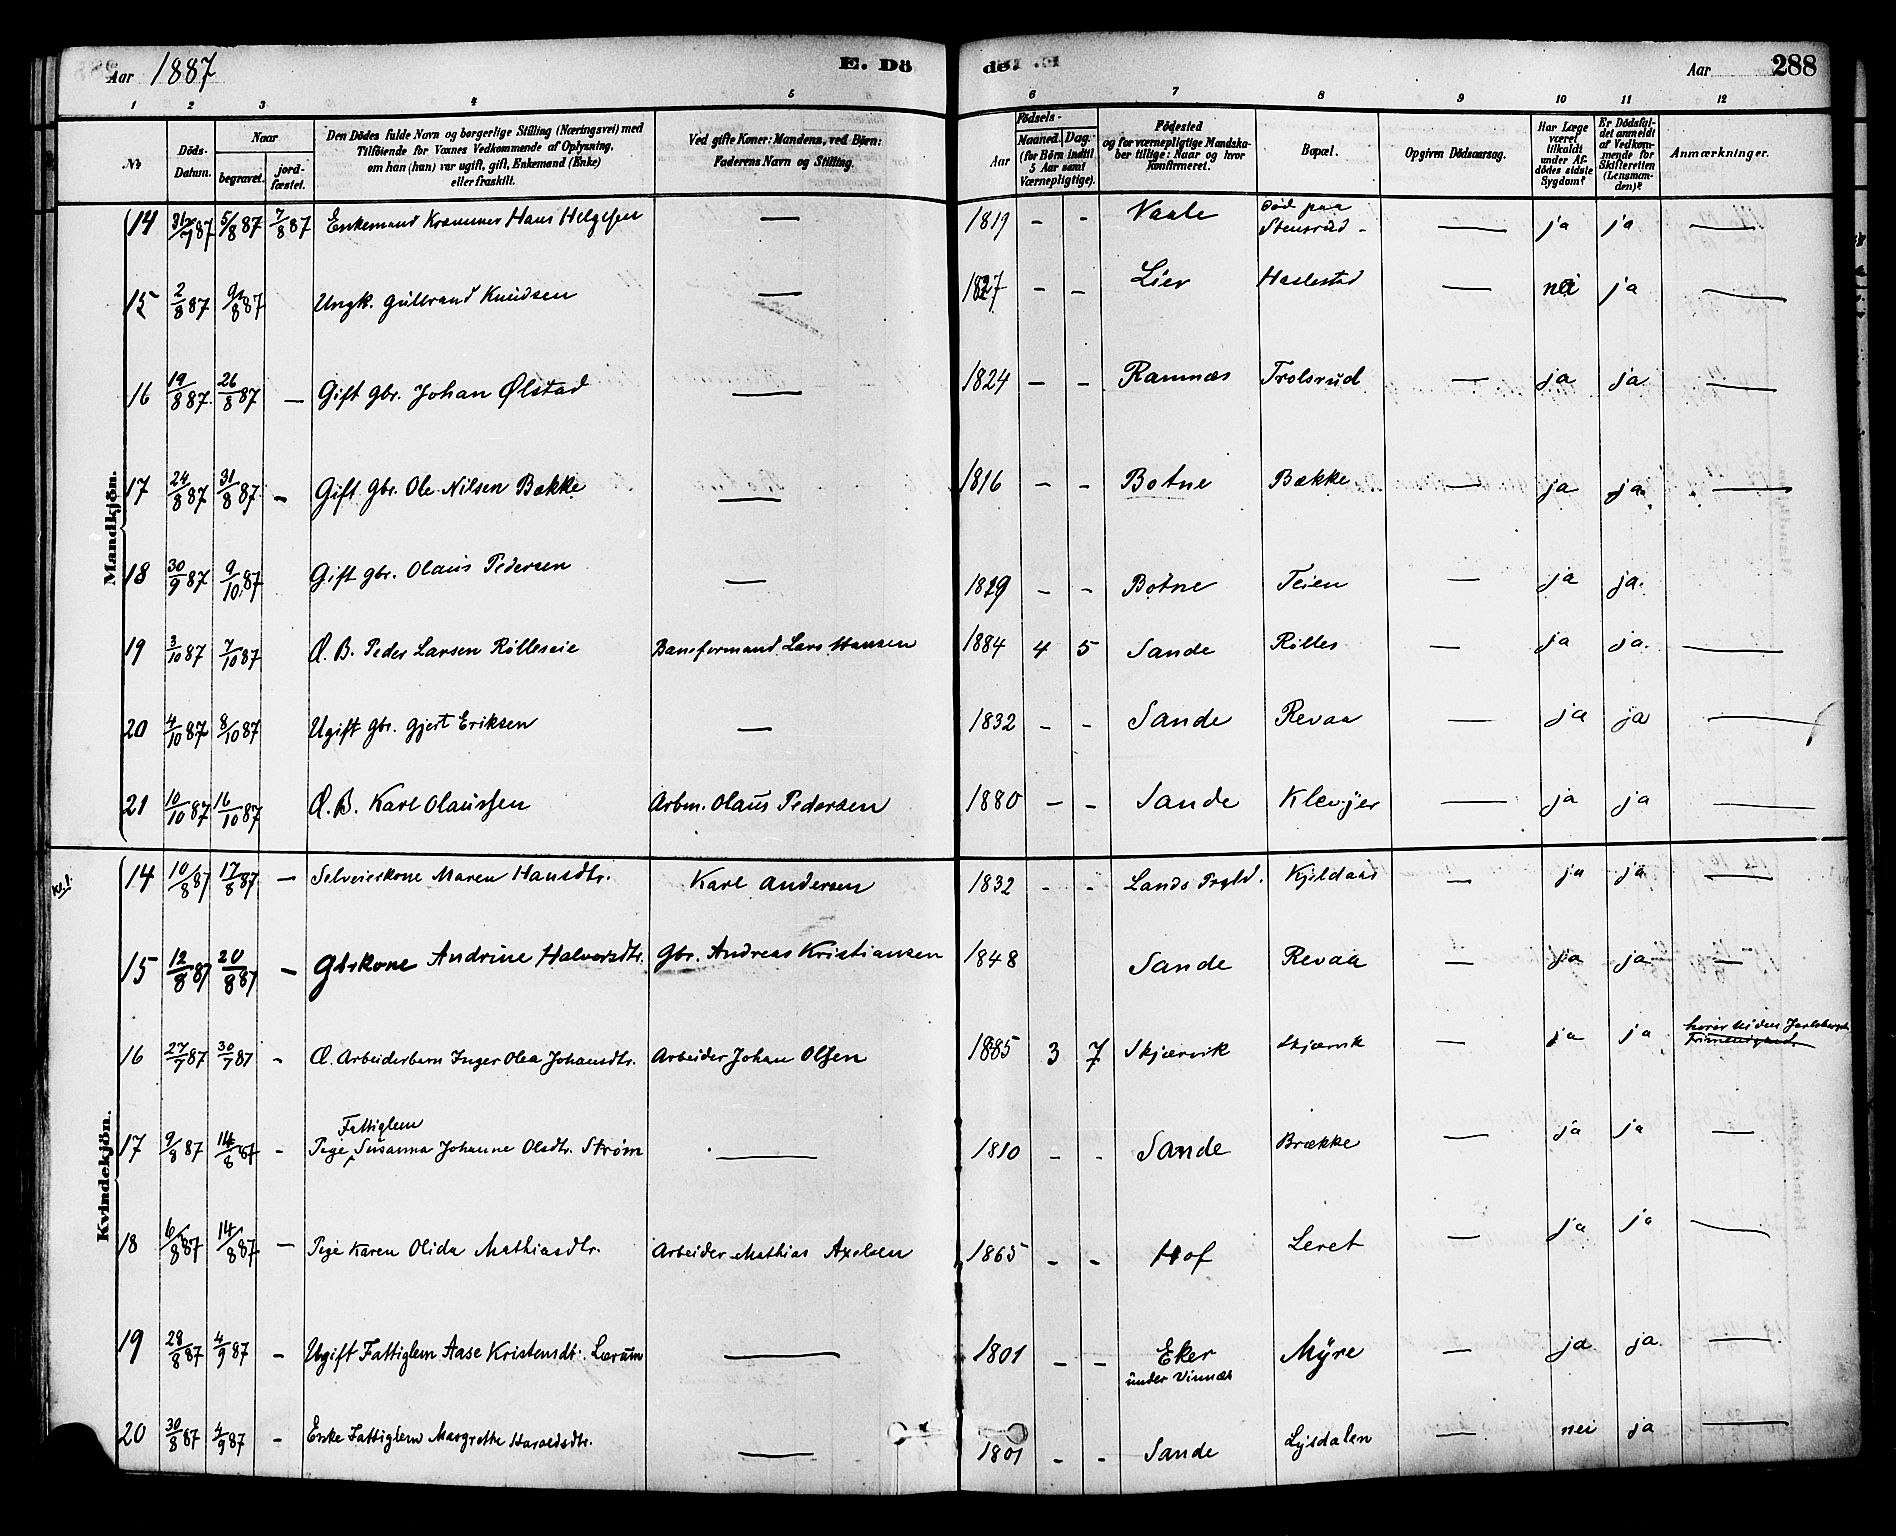 Aar 1887 E. Dö
döde. Aar 288
1 2 3 4 5 6 7 8 9 10 11 12
№ Döds-Datum. Naar begravet. jordfæstet. Den Dödes fulde Navn og borgerlige Stilling (Næringsvei) med Tilföiende for Voxnes Vedkommende af Oplysning, om han (hun) var ugift, gift, Enkemand (Enke) eller fraskilt. Ved gifte Koner: Mandens, ved Börn: Faderens Navn og Stilling. Födsels- Aar Maaned. Dag. (for Börn indtil 5 Aar samt Værnepligtige). Födested og for værnepligtige Mandskaber tillige: Naar og hvor Konfirmeret. Bopæl. Opgiven Dödsaarsag. Har Læge været tilkaldt under Afdödes sidste Sygdom? Er Dödsfaldet anmeldt af Vedkommende for Skifteretten (Lensmanden)? Anmærkninger.
Mandkjön.
14 31/7 87 5/8 87 7/8 87 Enkemand Kræmmer Hans Helgesen — 1819 - - Vaale Död paa Stensrüd — ja ja —
15 2/8 87 9/8 87 Ungk. Gulbrand Knudsen — 1827 - - Lier Haslestad — nei ja —
16 19/8 87 26/8 87 — Gift Gbr. Johan Ølstad — 1824 - - Ramnæs Trolsrud — ja ja —
17 24/8 87 31/8 87 - Gift Gbr. Ole Nilsen Bække — 1816 - - Botne Bække — ja ja —
18 30/9 87 9/10 87 Gift gbr. Olaus Pedersen — 1829 - - Botne Teien — ja ja.
19 3/10 87 7/10 87 Æ. B. Peder Larsen Rølleseie Baneformand Lars Hansen 1884 4 5 Sande Rølles — ja ja. —
20 4/10 87 8/10 87 Ugift Gbr. Gjert Eriksen — 1832 - - Sande Revaa — ja ja —
21 10/10 87 16/10 87 Æ. B. Karl Olaussen Arbm. Olaüs Pedersen 1880 - - Sande Klevjer — ja ja —
Kvindekjön.
14 10/8 87 17/8 87 — Selveierkone Maren Hansdtr. Karl Andersen 1832 - - Lands Prgld. Kjeldaas — ja ja —
15 12/8 87 20/8 87 - Gbrkone Andrine Halvorsdtr. Gbr. Andreas Kristiansen 1848 Sande Revaa — ja ja —
16 27/7 87 30/7 87 - Æ. Arbeiderbarn Inger Olea Johansdtr. Arbeider Johan Olsen 1885 3 7 Skjærvik Skjærvik — ja ja hører til den Jarlsbergske Frimenighed.
17 9/8 87 14/8 87 - Pige Fattiglem Susanna Johanne Olsdtr. Strøm — 1810 - - Sande Brække — ja ja —
18 6/8 87 14/8 87 — Pige Karen Olida Mathiasdtr. Arbeider Mathias Axelsen 1865 - - Hof Leret — ja ja —
19 28/8 87 4/9 87 - Ugift Fattiglem Aase Kristensdt. Lærum — 1801 - - Eker under Vinnæs Myre — ja ja —
20 30/8 87 4/9 87 - Enke Fattiglem Margrethe Haraldsdtr. — 1801 - - Sande Lysdalen — nei ja —